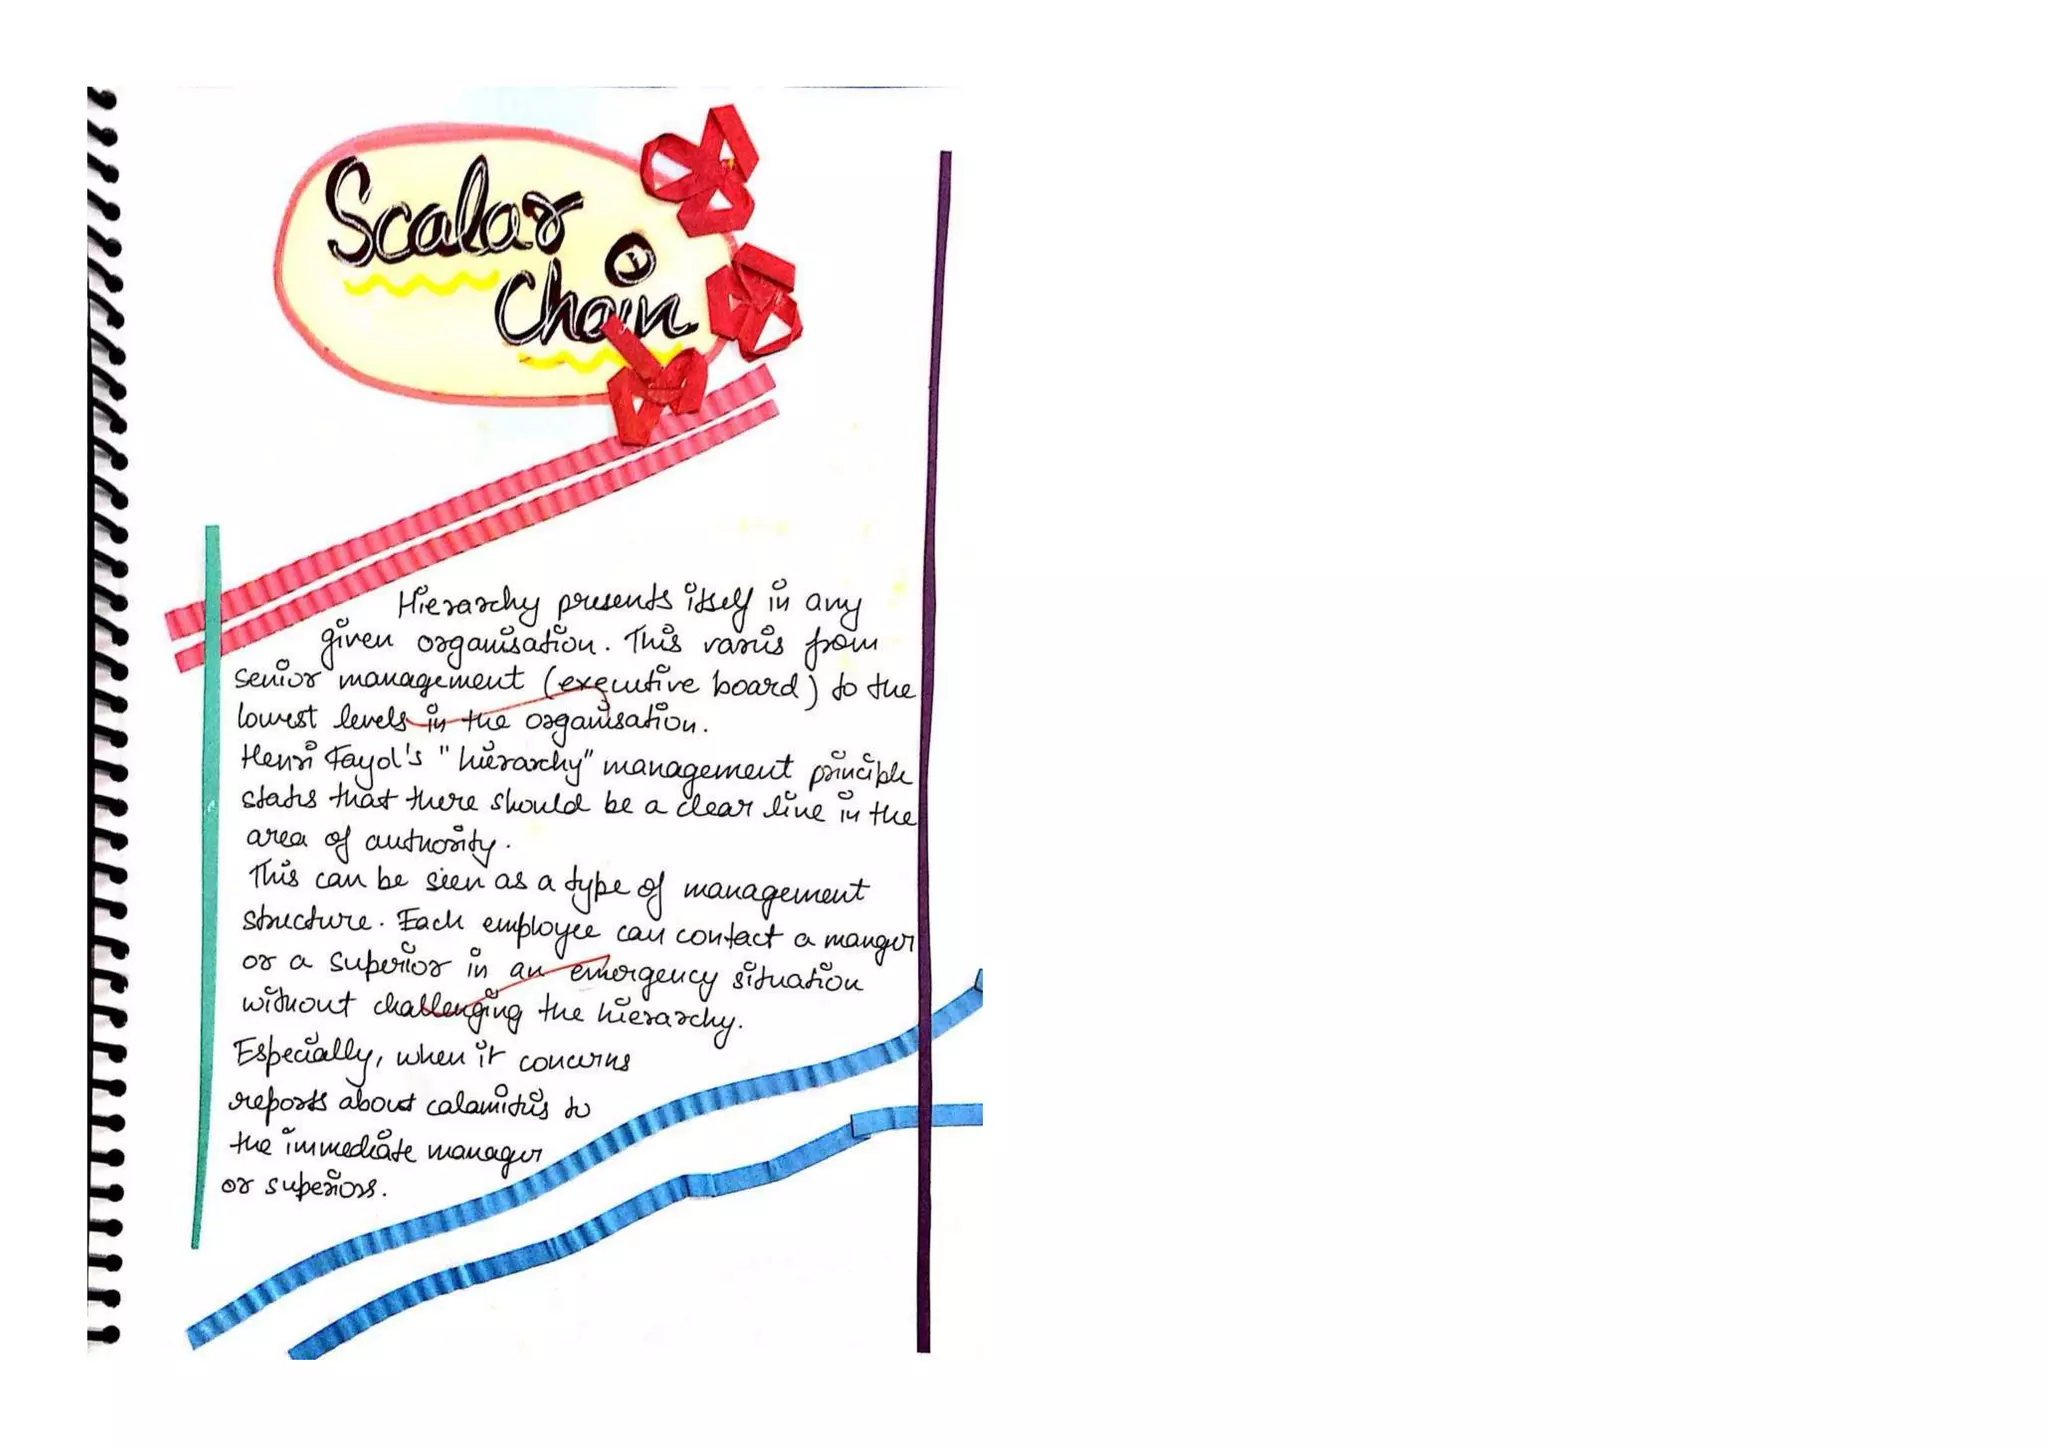 Scalar
Chain
Hierarchy presents itself in any
given organisation. This varies from
senior management (executive board) to the
lowest levels in the organisation.
Henri Fayol's "hierarchy" management principle
states that there should be a clear line in the
area of authority.
This can be seen as a type of management
structure. Each employee can contact a manger
or a superior in an emergency situation
without challenging the hierarchy.
Especially, when it concerns
reports about calamities to
the immediate manager
or superiors.